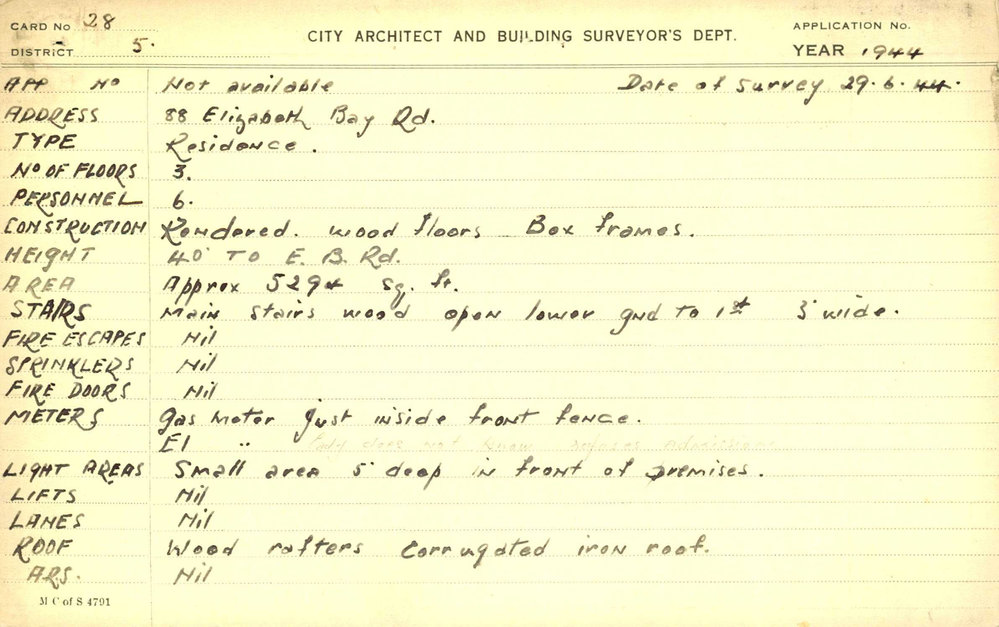 CARD No 28
DISTRICT 5.
CITY ARCHITECT AND BUILDING SURVEYOR'S DEPT.
APPLICATION No.
YEAR 1944
APP No Not available Date of Survey 29.6.44.
ADDRESS 88 Elizabeth Bay Rd.
TYPE Residence.
No OF FLOORS 3.
PERSONNEL 6.
CONSTRUCTION Rendered. wood floors Box frames.
HEIGHT 40' TO E. B. Rd.
AREA Approx 5294 sq. ft.
STAIRS Main stairs wood open lower gnd to 1st 3' wide.
FIRE ESCAPES Nil
SPRINKLERS Nil
FIRE DOORS Nil
METERS Gas meter just inside front fence.
El " Lady does not know refuses admission
LIGHT AREAS Small area 5' deep in front of premises.
LIFTS Nil
LANES Nil
ROOF Wood rafters corrugated iron roof.
ARS. Nil
M C of S 4791